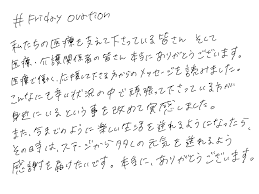 #Friday ovation
私たちの医療を支えて下さっている皆さん そして
医療・介護関係者の皆さん 本当にありがとうございます。
医療で働く、応援して下さる方からのメッセージを読みました。
こんなにも辛い状況の中で頑張って下さっている方が
身近にいるという事を改めて実感しました。
また、今までのように楽しい生活を送れるようになったら、
その時は、ステージから沢山の元気を送れるよう
感謝を届けたいです。本当に、ありがとうございます。